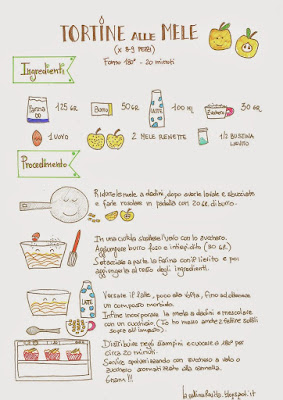 TORTINE ALLE MELE
(x 8-9 pezzi)
Forno 180° - 20 minuti
Ingredienti
Farina 00
125 GR.
Burro
50 GR.
LATTE
100 ml
Zucchero
30 GR.
1 UOVO
2 MELE RENETTE
1/2 BUSTINA
LIEVITO
Procedimento
Ridurre le mele a dadini, dopo averle lavate e sbucciate
e farle rosolare in padella con 20 GR. di burro.
In una ciotola sbattere l'uovo con lo zucchero.
Aggiungere burro fuso e intiepidito (30 GR.)
Setacciate a parte la farina con il lievito e poi
aggiungerla al resto degli ingredienti.
LATTE
Versare il latte, poco alla volta, fino ad ottenere
un composto morbido.
Infine incorporare le mele a dadini e mescolare
con un cucchiaio. (Io ho messo anche 2 fettine sottili
sopra all'impasto).
Distribuire negli stampini e cuocere a 180° per
circa 20 minuti.
Servire spolverizzando con zucchero a velo o
zucchero aromatizzato alla cannella.
Gnam!!!